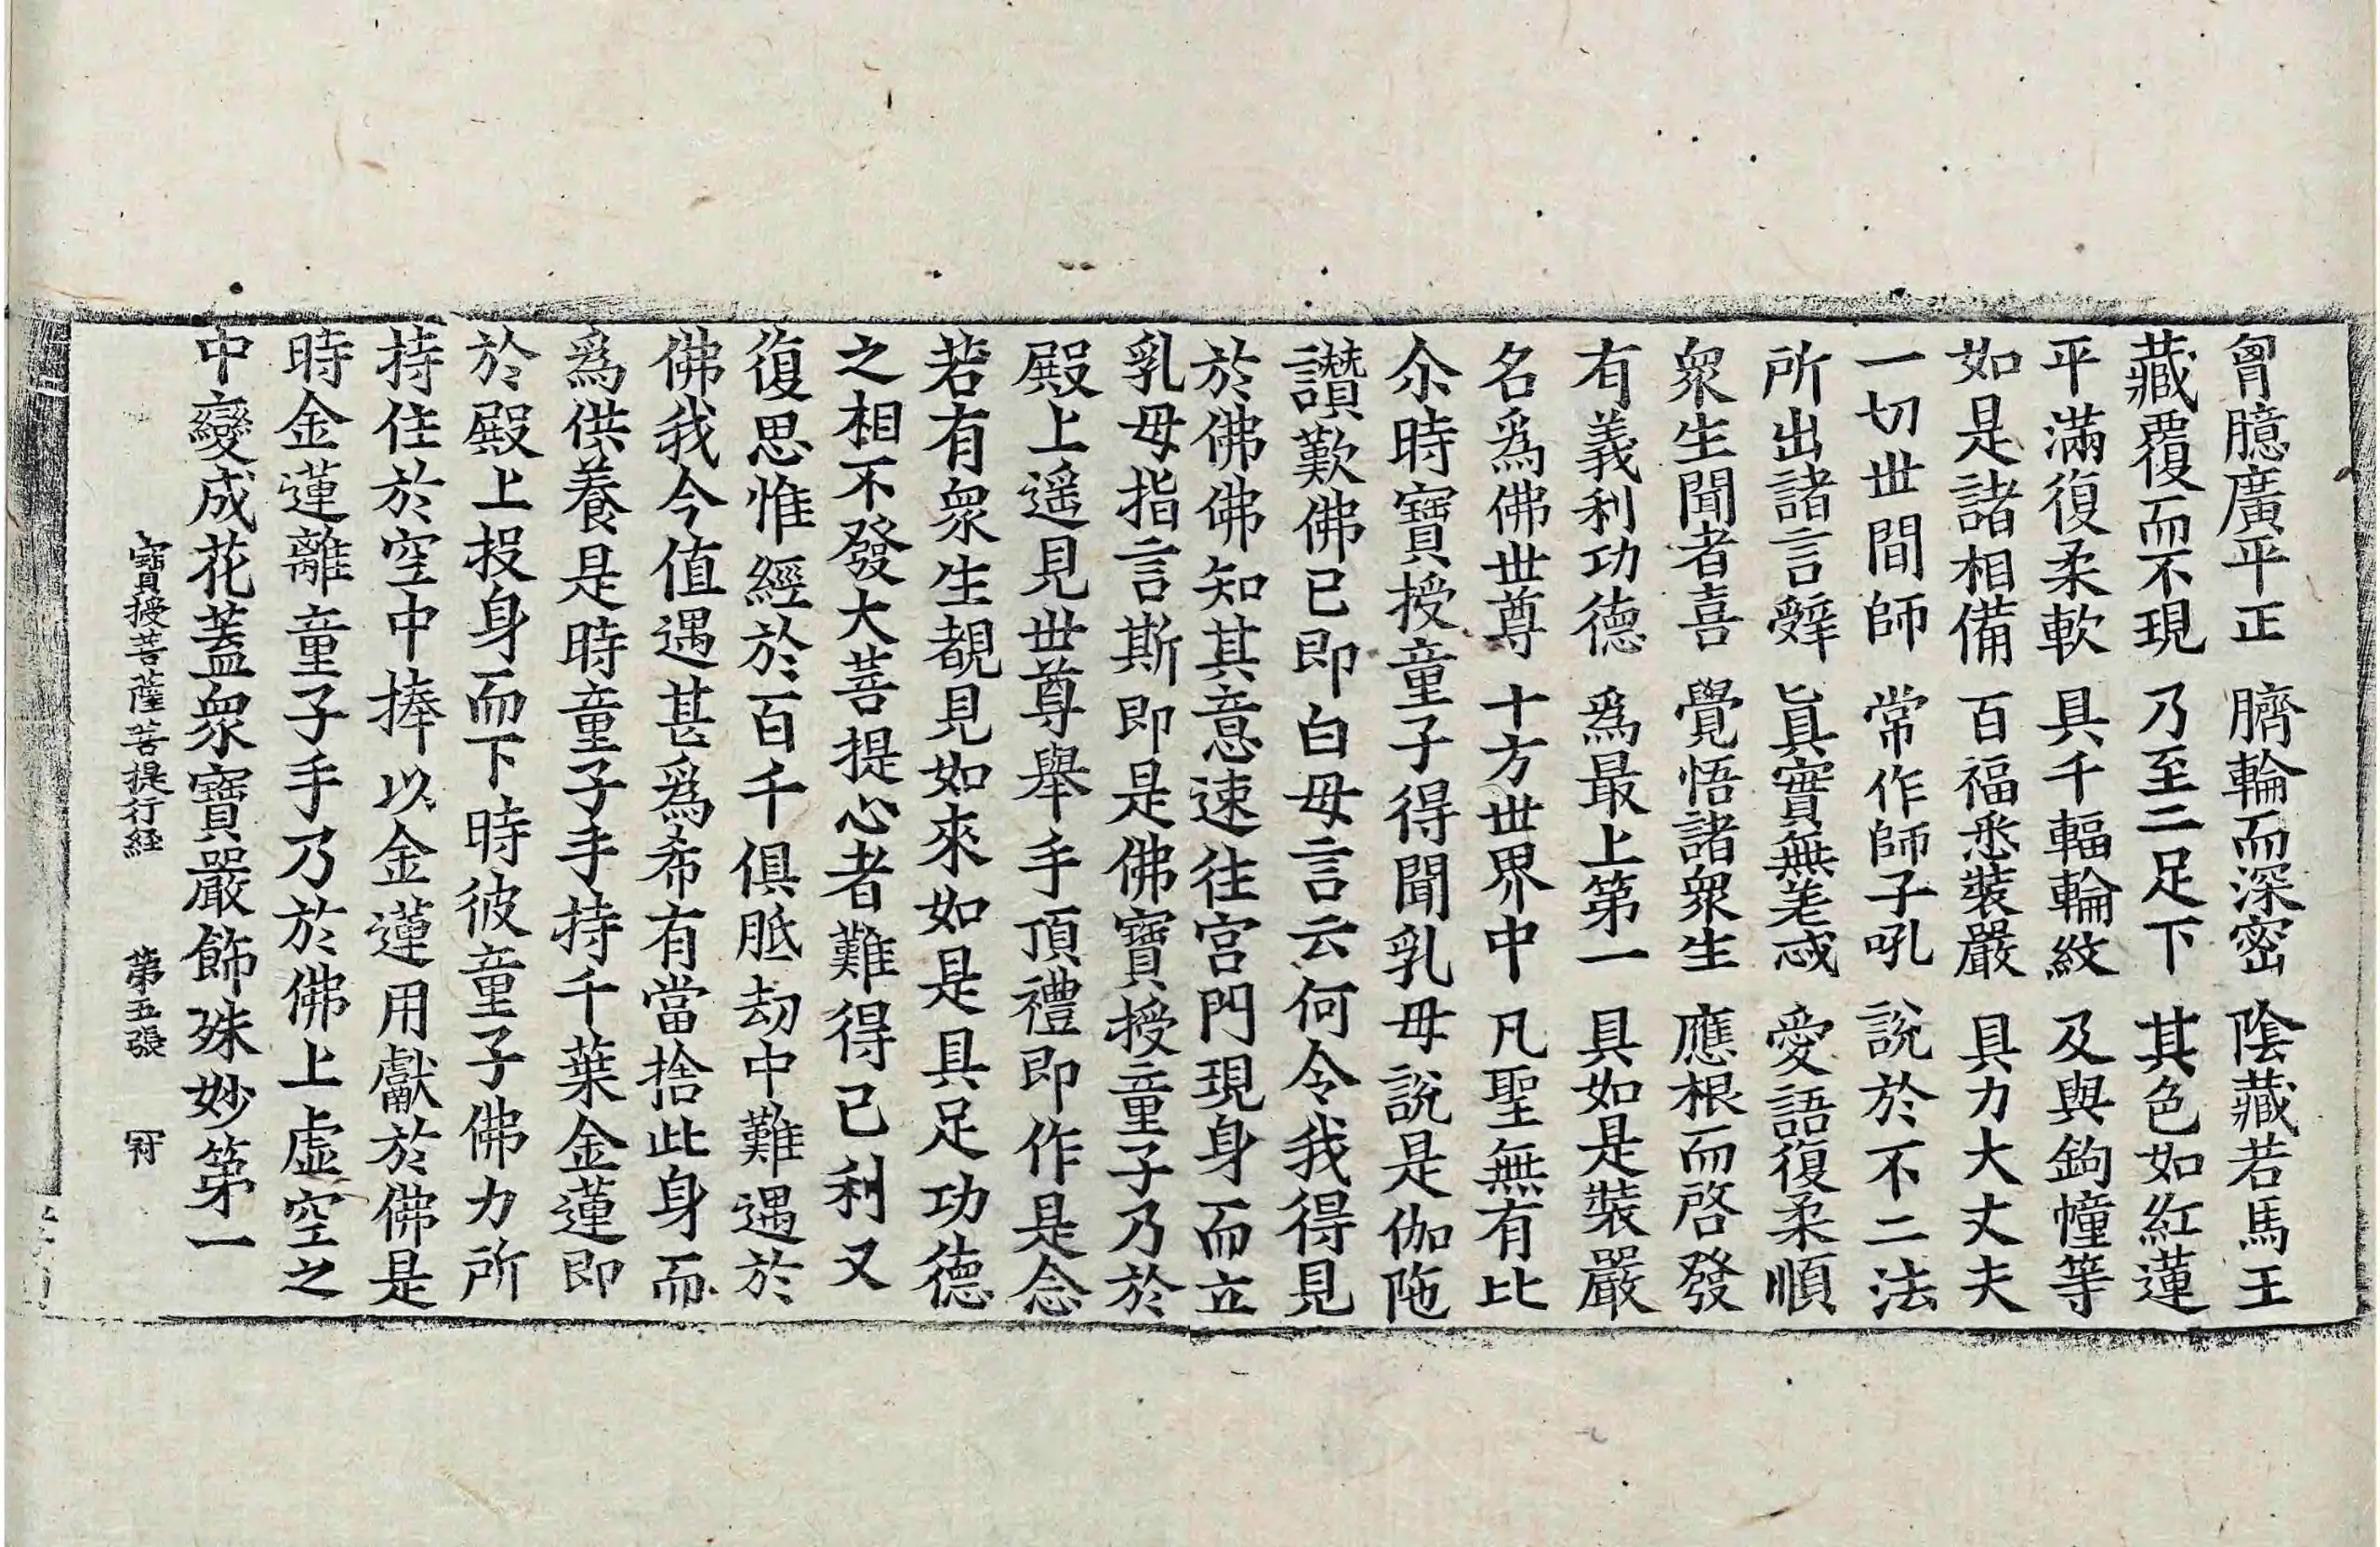 胷臆廣平正 臍輪而深密 陰藏若馬王
藏覆而不現 乃至二足下 其色如紅蓮
平滿復柔軟 具千輻輪紋 及與鉤幢等
如是諸相備 百福悉裝嚴 具力大丈夫
一切世間師 常作師子吼 說於不二法
所出諸言辤 眞實無差忒 愛語復柔順
衆生聞者喜 覺悟諸衆生 應根而啓發
有義利功德 爲最上第一 具如是裝嚴
名爲佛世尊 十方世界中 凡聖無有比
尒時寶授童子得聞乳母說是伽陁
讃歎佛已即白母言云何令我得見
於佛佛知其意速往宮門現身而立
乳母指言斯即是佛寶授童子乃於
殿上遥見世尊舉手頂禮即作是念
若有衆生覩見如來如是具足功德
之相不發大菩提心者難得己利又
復思惟經於百千俱胝劫中難遇於
佛我今值遇甚爲希有當捨此身而
爲供養是時童子手持千葉金蓮即
於殿上投身而下時彼童子佛力所
持住於空中捧以金蓮用獻於佛是
時金蓮離童子手乃於佛上虛空之
中變成花蓋衆寶嚴飾殊妙第一
寶授菩薩菩提行経 第五張